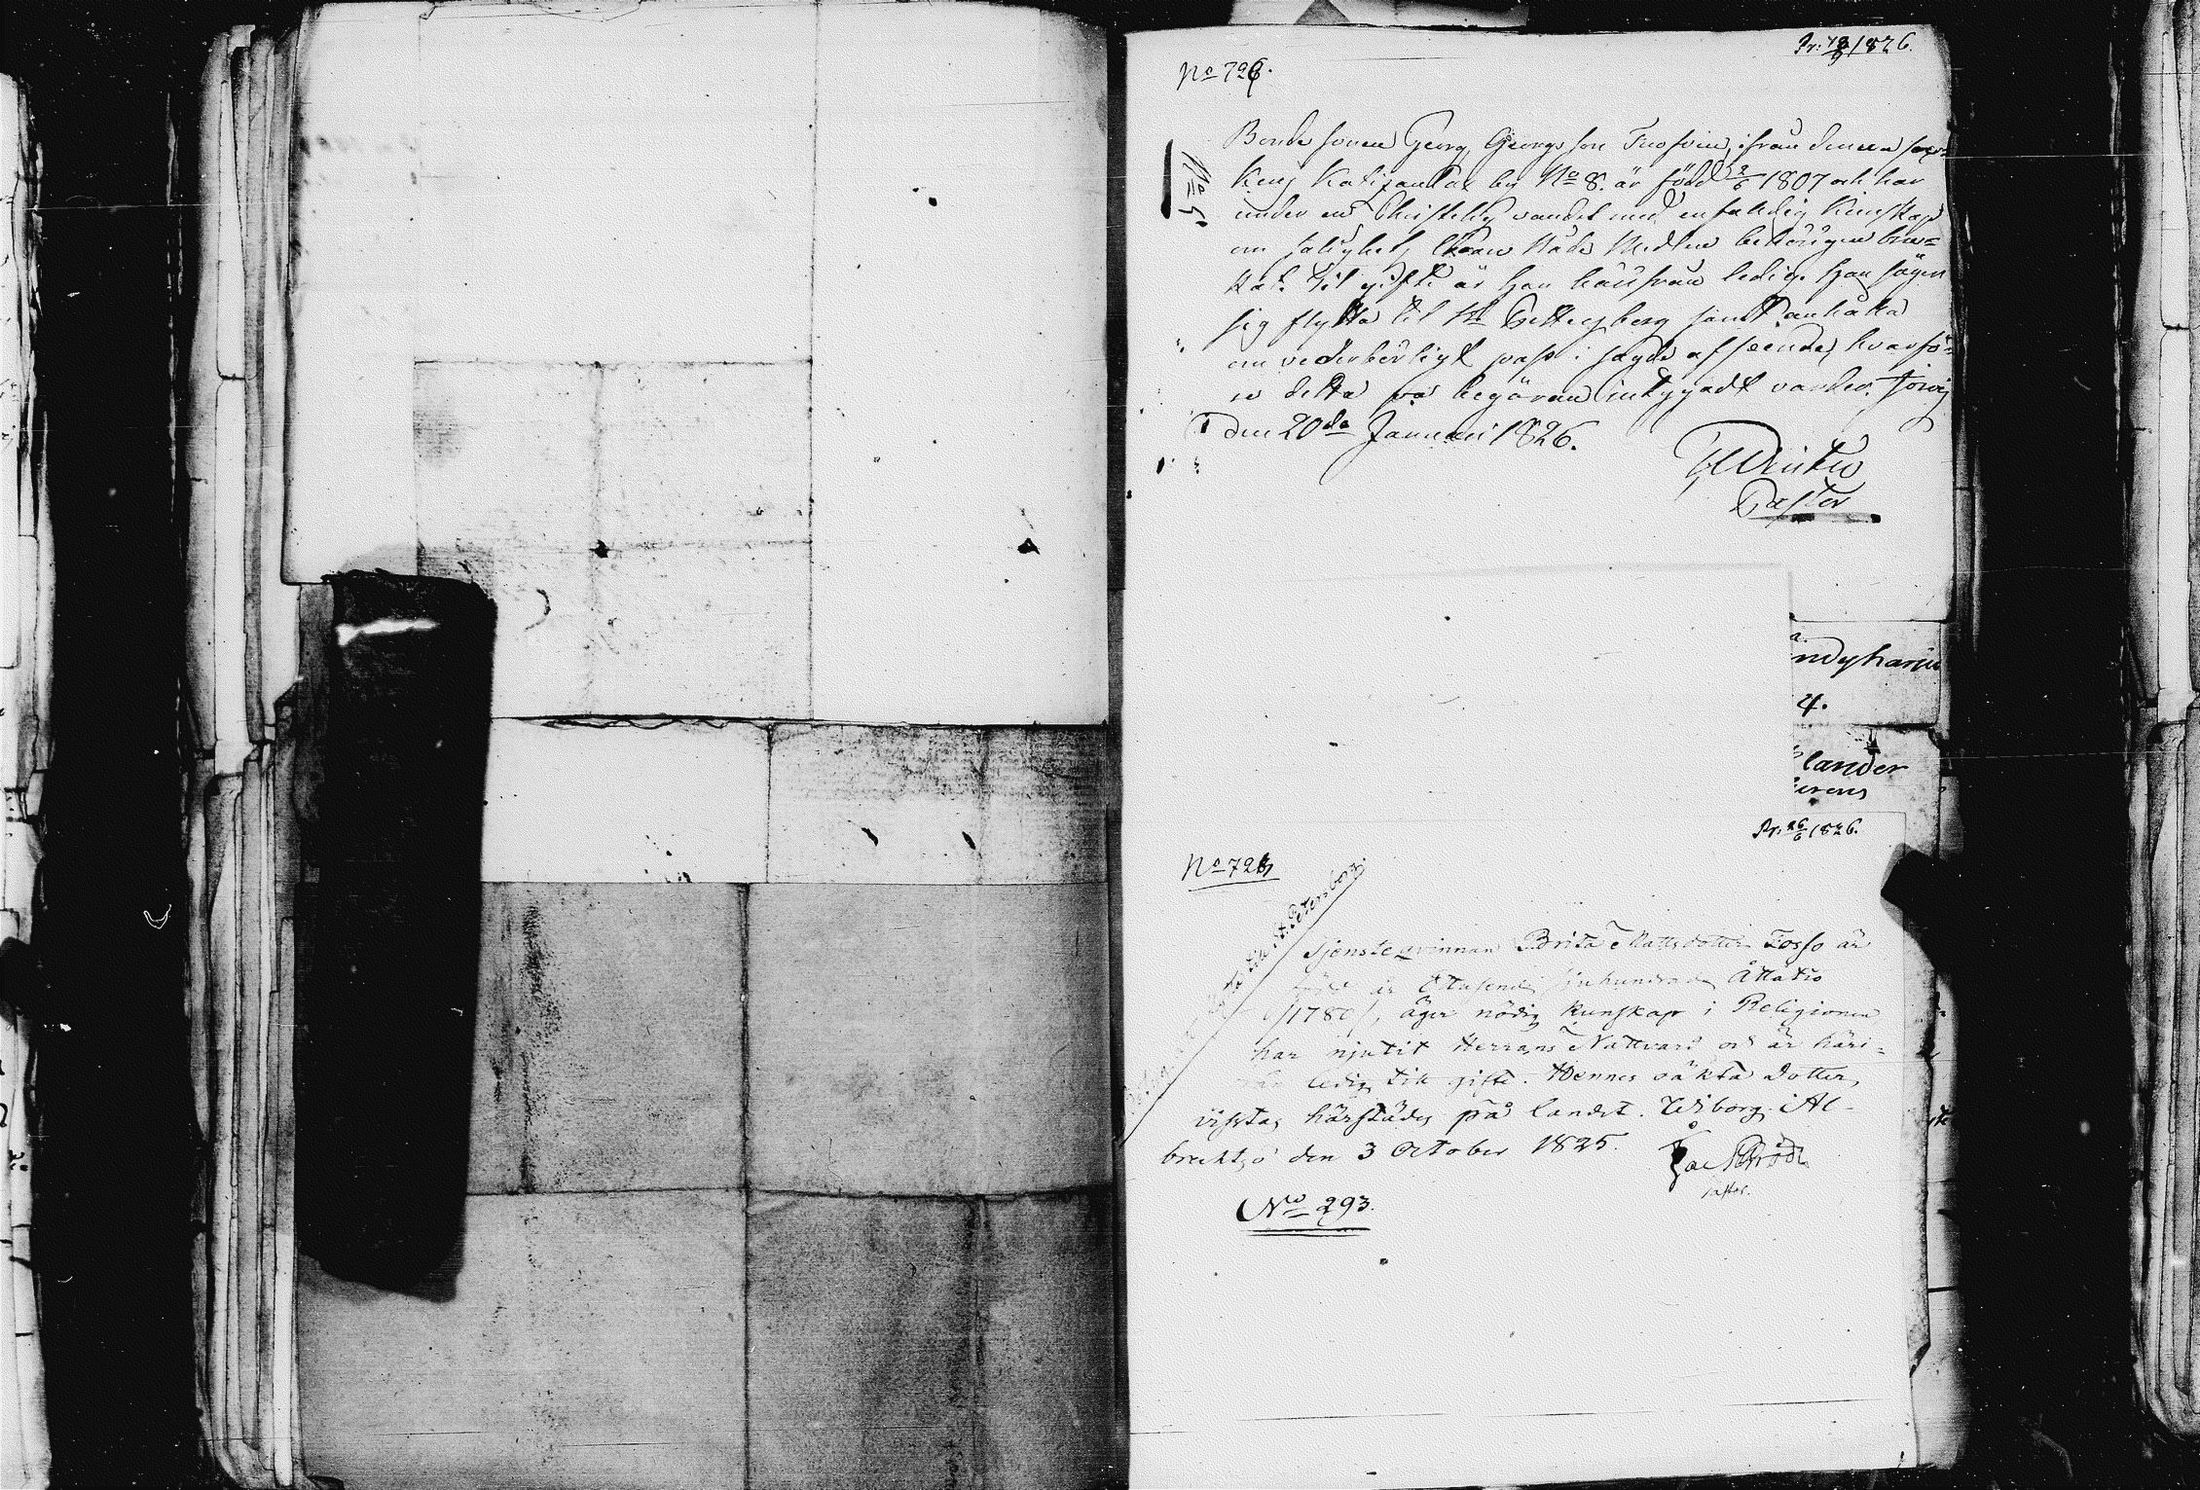 Pr: 18/9 1826.
No 726.
No 5
Bonde sonen Georg Georgs son Tuosoin, ifrån denna sog=
kens by No 8. är född 2/6 1807 och har
under en Christelig vandel med enfaldig kunskap
om salighets Nåde Medlen behörigen bru=
kat. Til gifte är han härifrån ledig. Han säger
sig flytta til St Pettersberg samt anhålla
om vederbörligt pass i sagde afseende, hvarfö=
re detta på begäran intygadt varder.
den 20de Januari 1826.
Pastor
ndyharju
4.
lander
Pr: 26/6 1826.
No 726
till St. Petersborg
Tjenste qvinnan Brita Mattsdotter Tosso är
född år Ettusende sjuhundrade Åttatio
/1780/, äger nödig kunskap i Religionen
har njutit Herrans Nattvard och är häri=
från ledig till gifte. Hennes oäkta dotter
vistas härstädes på landet. Wiborg i Al-
brektsö den 3 October 1825.
Pastor.
No 293.